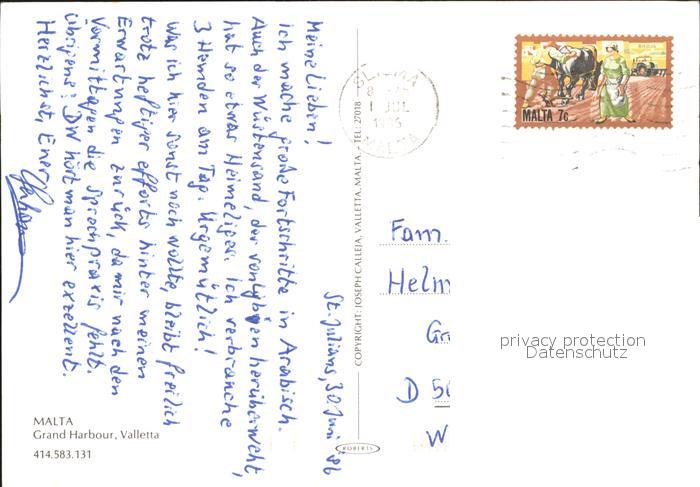 St. Julians, 30 Juni 86
Meine Lieben!
ich mache große Fortschritte in Arabisch.
Auch der Wüstensand, der von Lybien herüberweht,
hat so etwas Heimeliges. Ich verbrauche
3 Hemden am Tag. Urgemütlich!
Was ich hier sonst noch wollte, bleibt freilich
trotz heftiger efforts hinter meinen
Erwartungen zurück, da mir nach den
Vormittagen die Sprechpraxis fehlt.
Übrigens: DW hört man hier exzellent.
Herzlichst, Euer
MALTA
Grand Harbour, Valletta
414.583.131
COPYRIGHT: JOSEPH CALLEJA, VALLETTA, MALTA. - TEL: 27018
ROBERTS
SLIEMA
1 JUL
MALTA
MALTA 7c
Fam.
Helm
Gr
D 50
W
privacy protection
Datenschutz